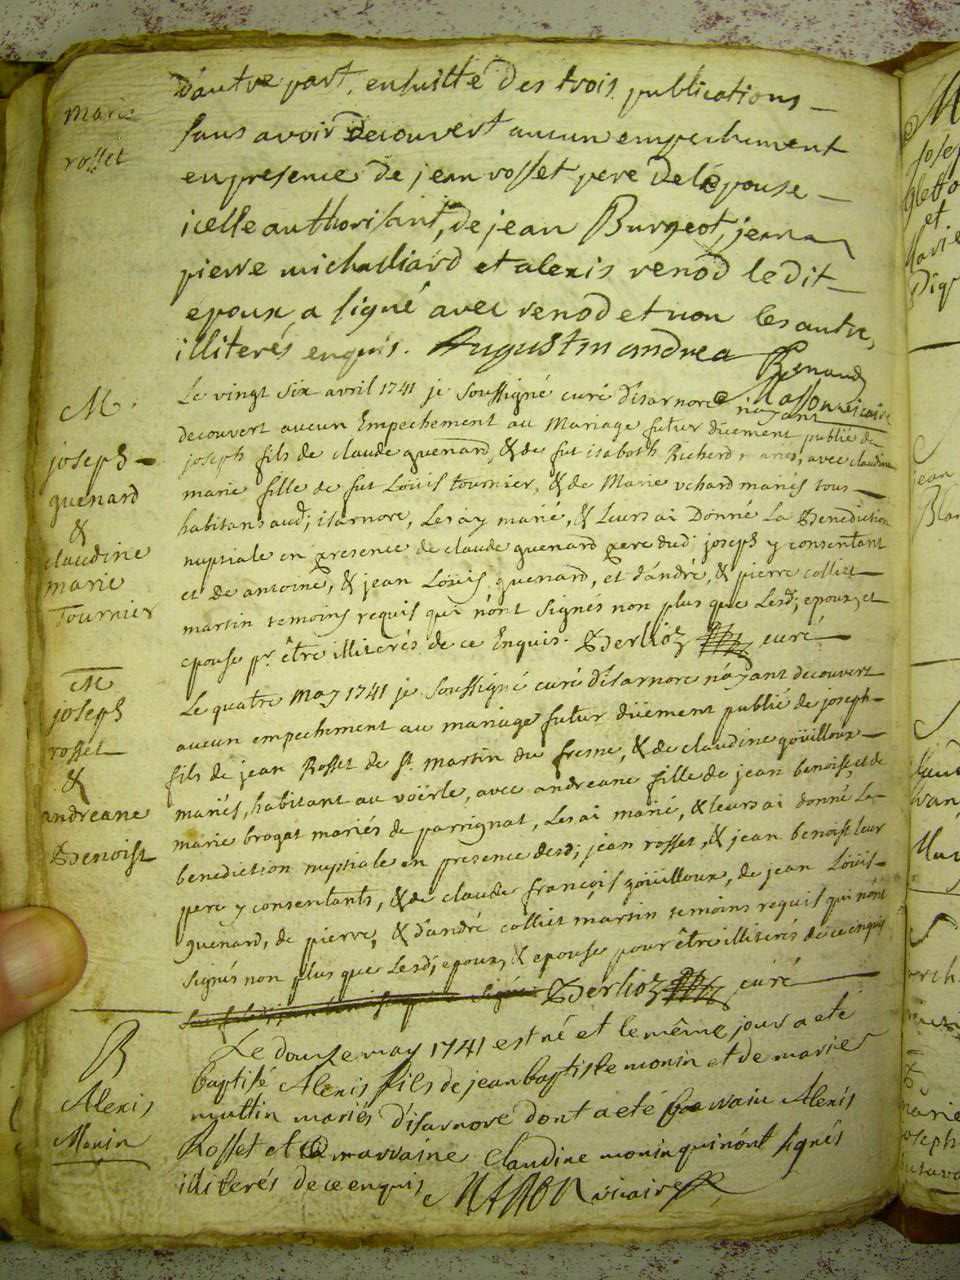 marie
rosset
d'autre part, ensuitte des trois publications
sans avoir decouvert aucun empechement
en presence de jean rosset pere de l'epouse
icelle authorisant, de jean Burgeot, jean
pierre michalliard et alexis renod le dit
epoux a signé avec renod et non les autre,
illiterés enquis. Augustin andrea Renaud
Masson vicaire
M.
joseph
guenard
&
claudine
marie
Tournier
Le vingt six avril 1741 je soussigné curé d'isarnore n'ayant
decouvert aucun Empechement au Mariage futur düement publié de
joseph fils de claude guenard, & de fut isaboth Richerd mariés, avec claudine
marie fille de fut Loüis tournier, & de Marie vchard mariés tous
habitans aud; isarnore, Les ay marié, & Leurs ai Donné La Benediction
nuptiale en presence de claude guenard pere dud; joseph y consentant
et de antoine, & jean Loüis guenard, et d'andré, & pierre colliet
martin temoins requis qui n'ont signés non plus que Lesd; epoux, et
epouse pr. être illiterés de ce Enquis. Berlioz curé
M
joseph
rosset
&
andreane
Benoist
Le quatre May 1741 je soussigné curé d'isarnore n'ayant decouvert
aucun empechement au mariage futur düement publié de joseph
fils de jean Rosset de st. martin du fresne, & de claudine goüilloux
mariés, habitant au voërle, avec andreane fille de jean benoist, et de
marie brogat mariés de parrignat, Les ai marié, & leurs ai donné La
benediction nuptiale en presence desd; jean rosset, & jean benoist leur
pere y consentants, & de claude françois goüilloux, de jean Loüis
guenard, de pierre, & d'andré colliet martin temoins requis qui n'ont
signés non plus que Lesd; epoux, & epouse pour être illiterés de ce enquis
Berlioz curé
B
Alexis
Monin
Le douze may 1741 est né et le même jour a eté
baptisé Alexis fils de jean baptiste monin et de marie
multin mariés d'isarnore dont a eté parrain Alexis
Rosset et marraine Claudine monin qui n'ont signés
illiterés de ce enquis Masson vicaire